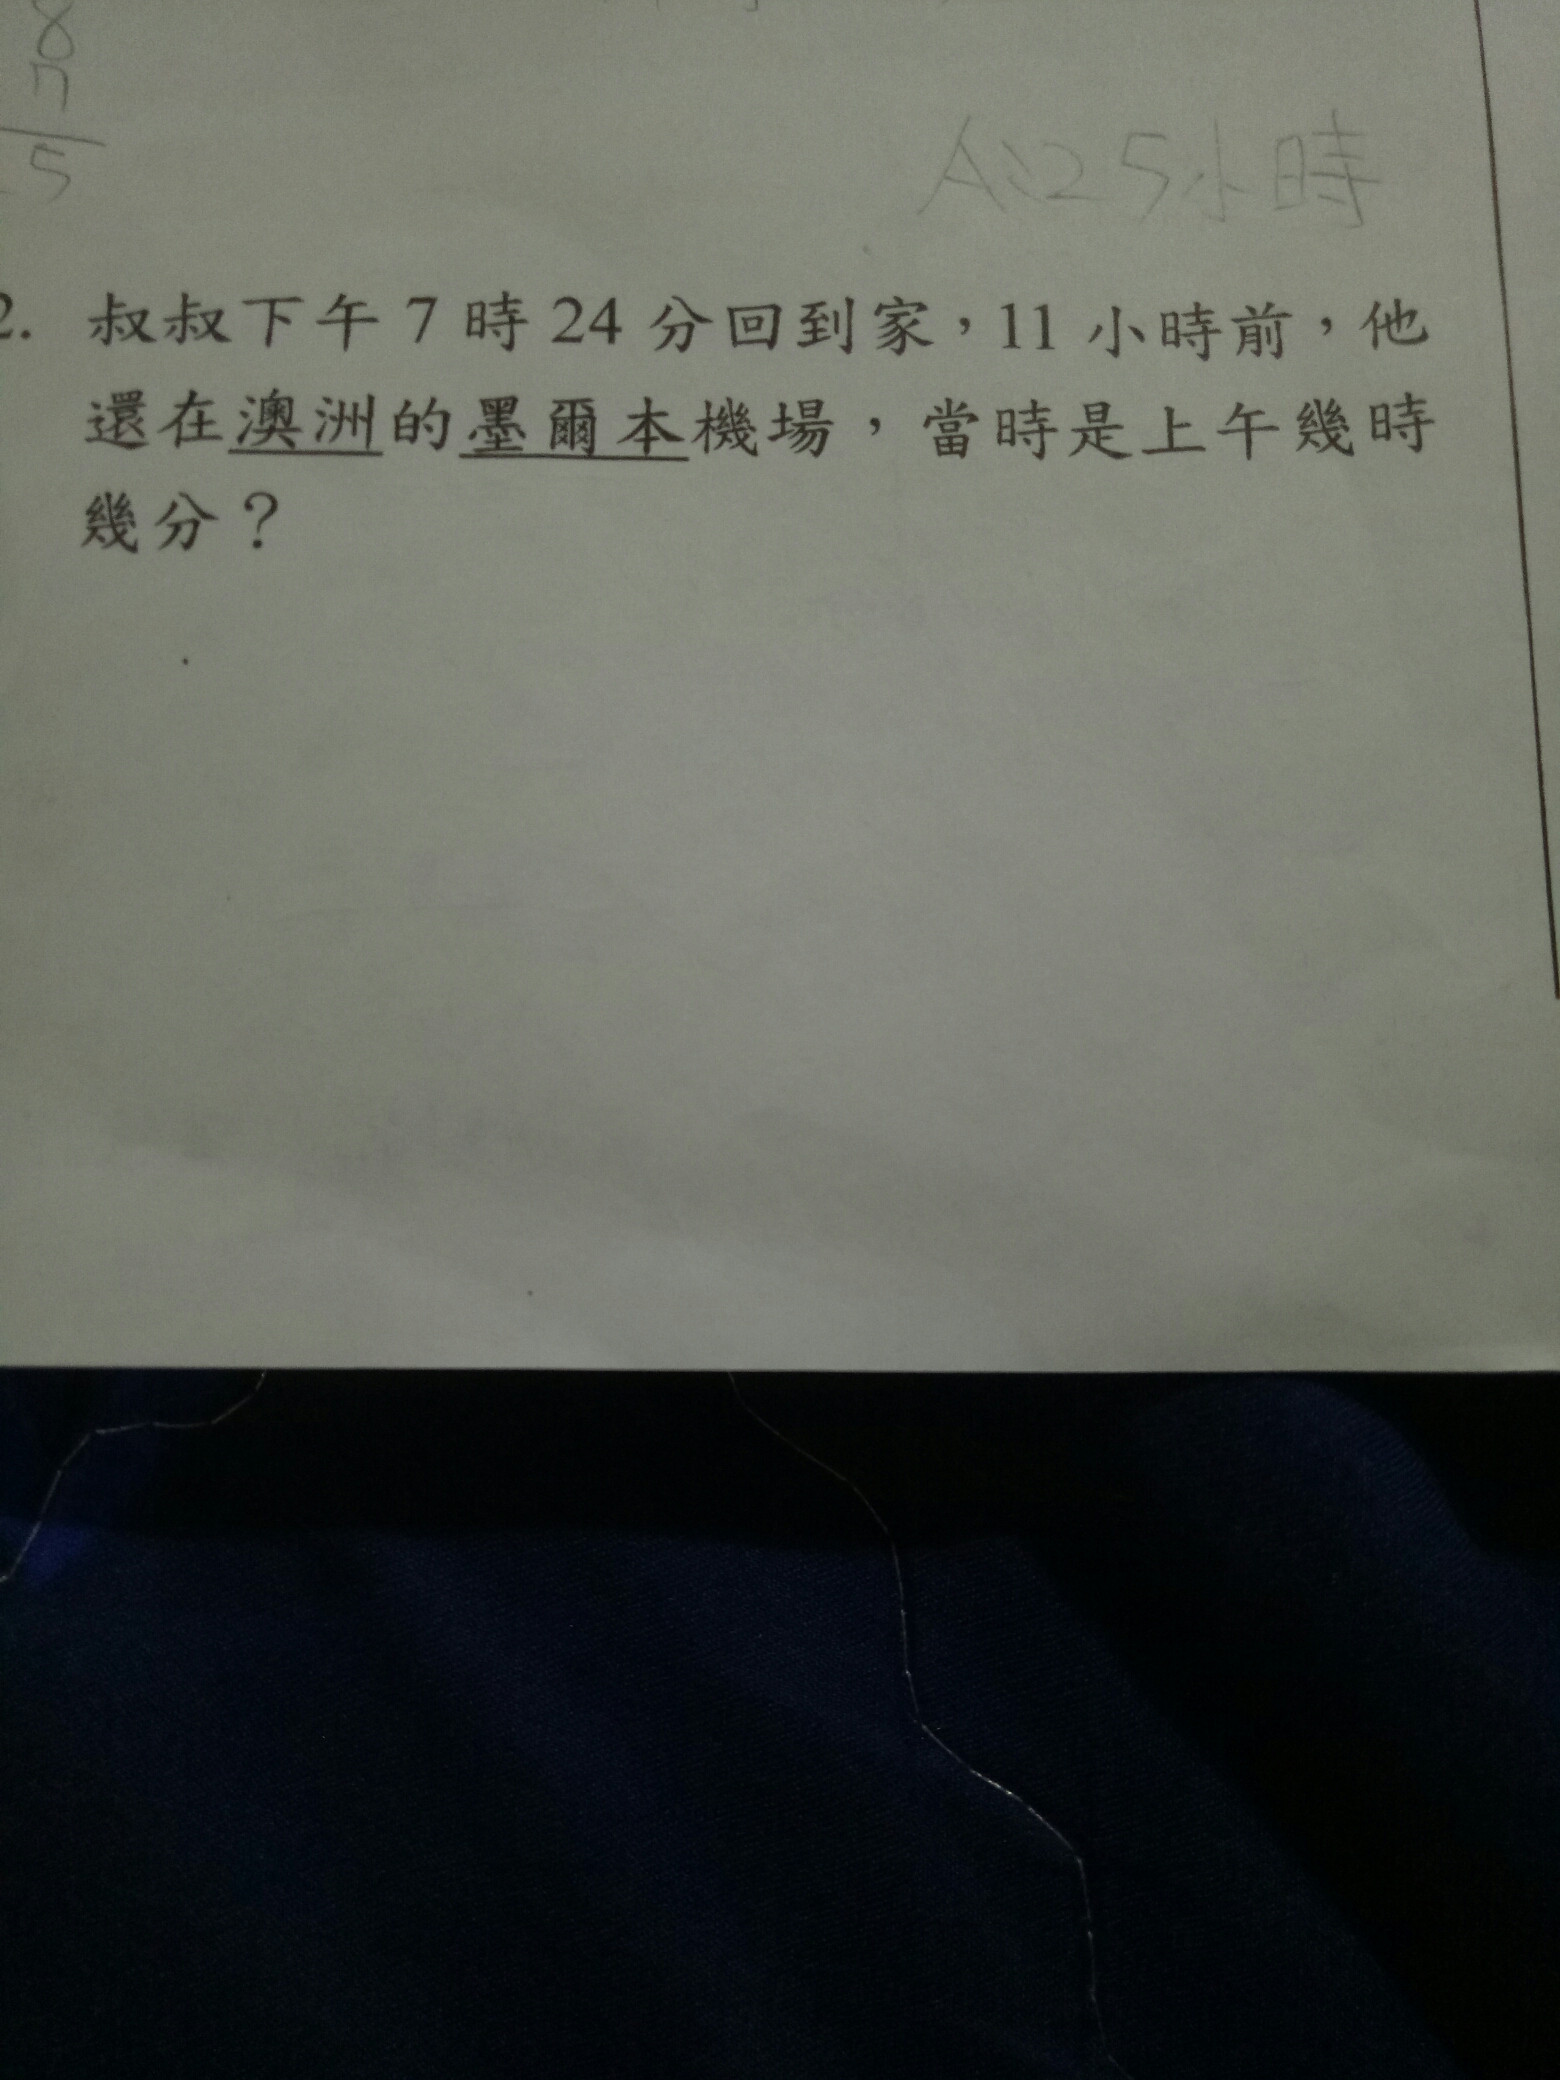 8
7
5
A：25小時
2. 叔叔下午 7 時 24 分回到家，11 小時前，他
還在澳洲的墨爾本機場，當時是上午幾時
幾分？